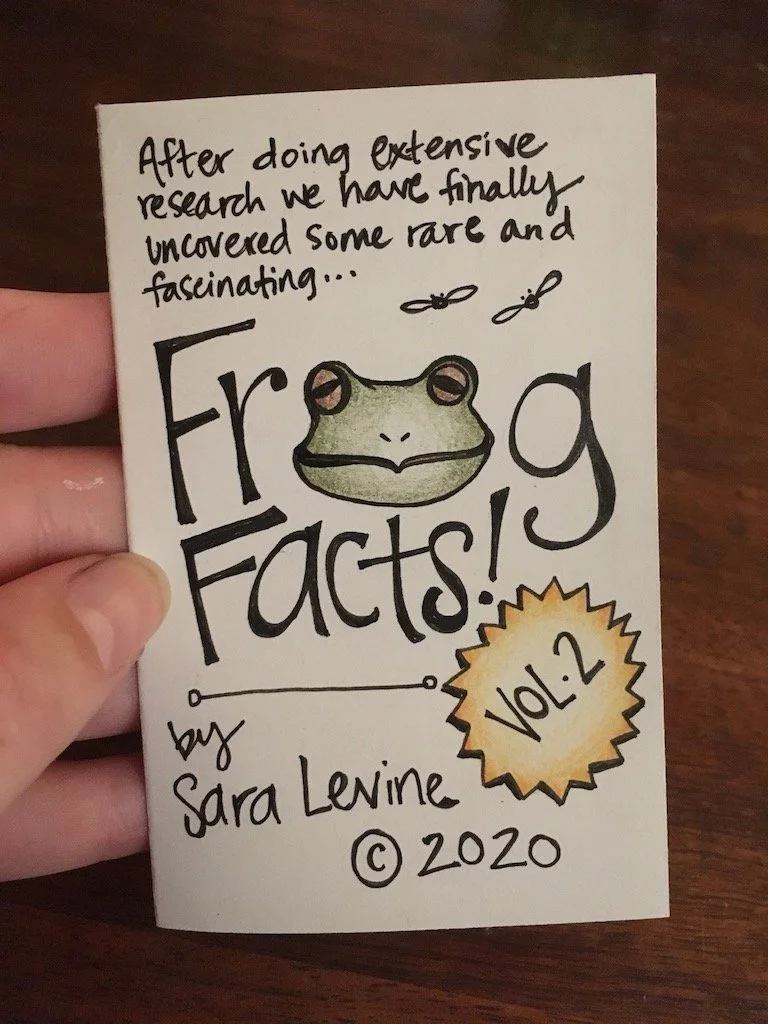 After doing extensive
research we have finally
uncovered some rare and
fascinating...
Frog
Facts!
VOL.2
by
Sara Levine
© 2020